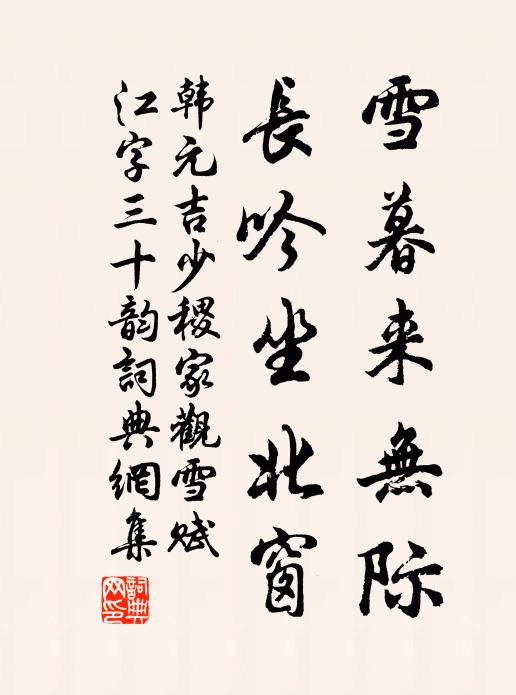 雪暮来無际
長吟坐北窗
韩元吉少稷家觀雪赋
江字三十韵詞典網集
詞典網印